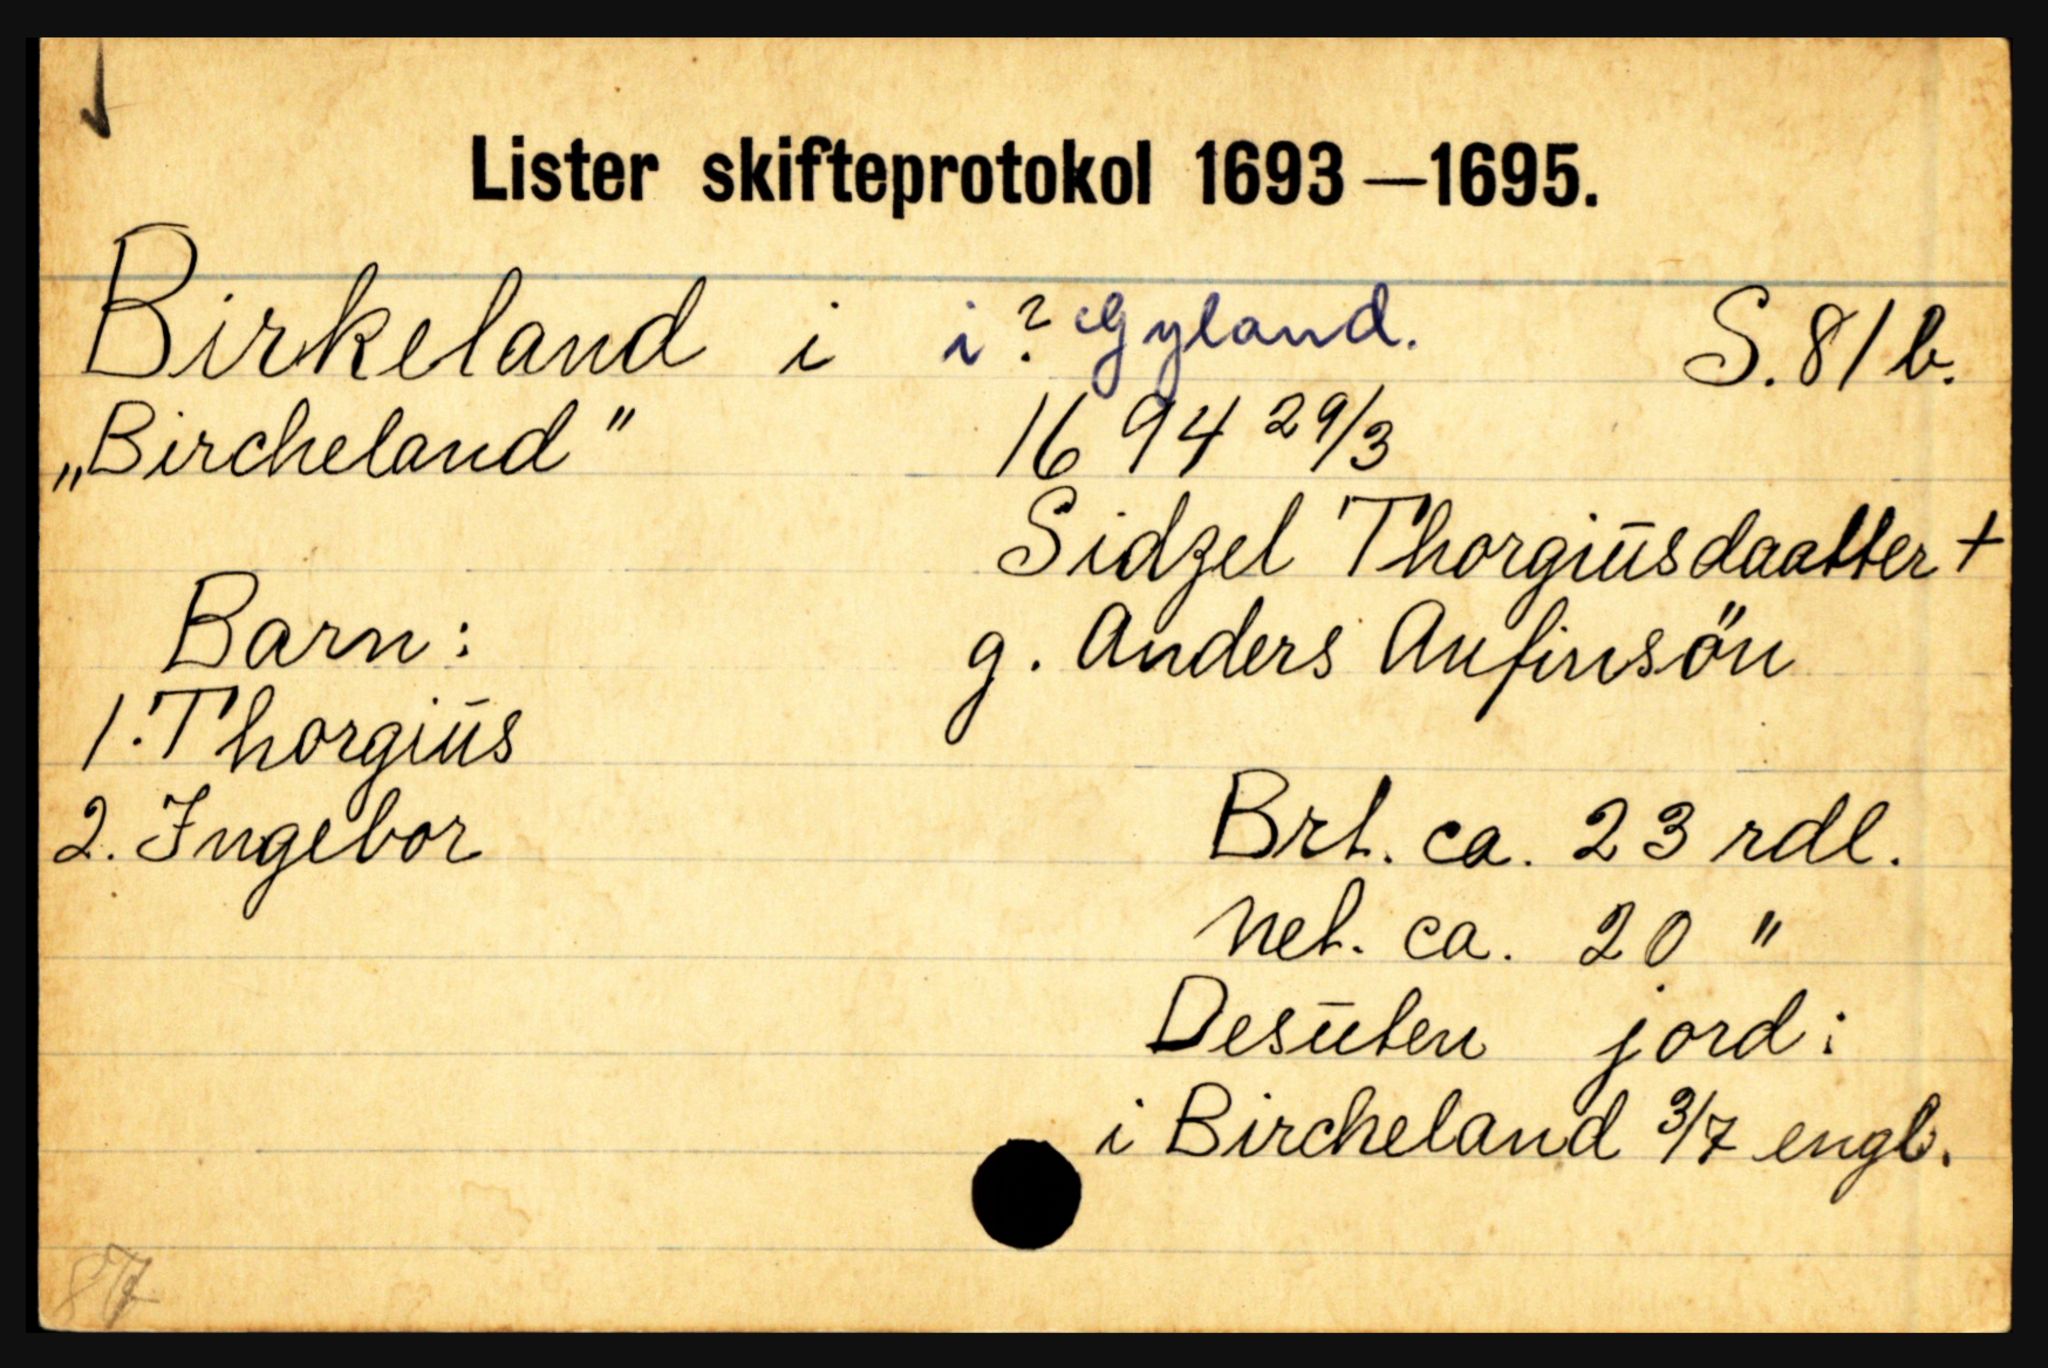 Lister skifteprotokol 1693—1695.
Birkeland i i? Gyland. S. 81 b.
„Bircheland" 1694 29/3
Sidzel Thorgiusdaatter +
Barn: g. Anders Aufinsön
1. Thorgius
2. Ingebor Brt. ca. 23 rdl.
Net. ca. 20 "
Desuten jord:
i Bircheland 3/7 engl.
87